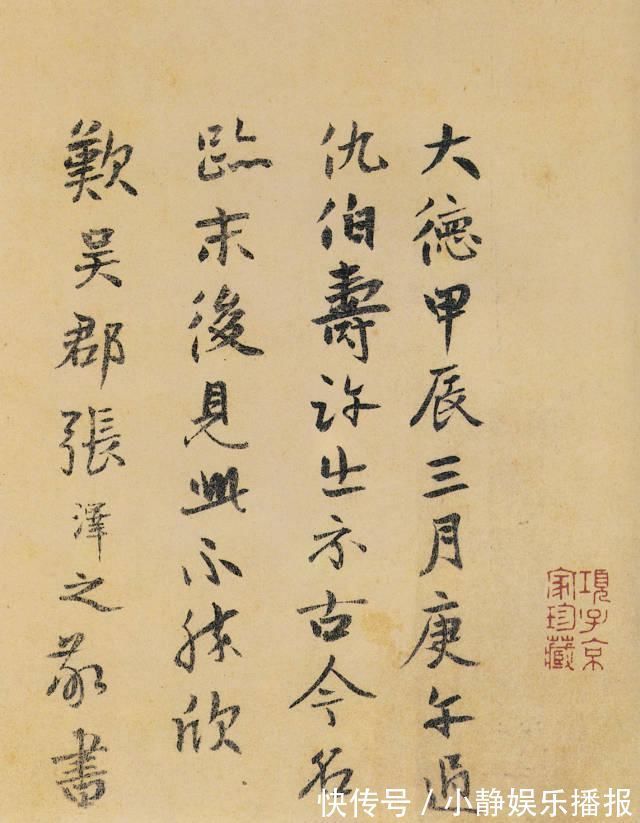 項子京
家珍藏
大德甲辰三月庚午過
仇伯壽許出示古今名
跡末後見此不勝欣
歎吳郡張澤之敬書
快传号 / 小静娱乐播报